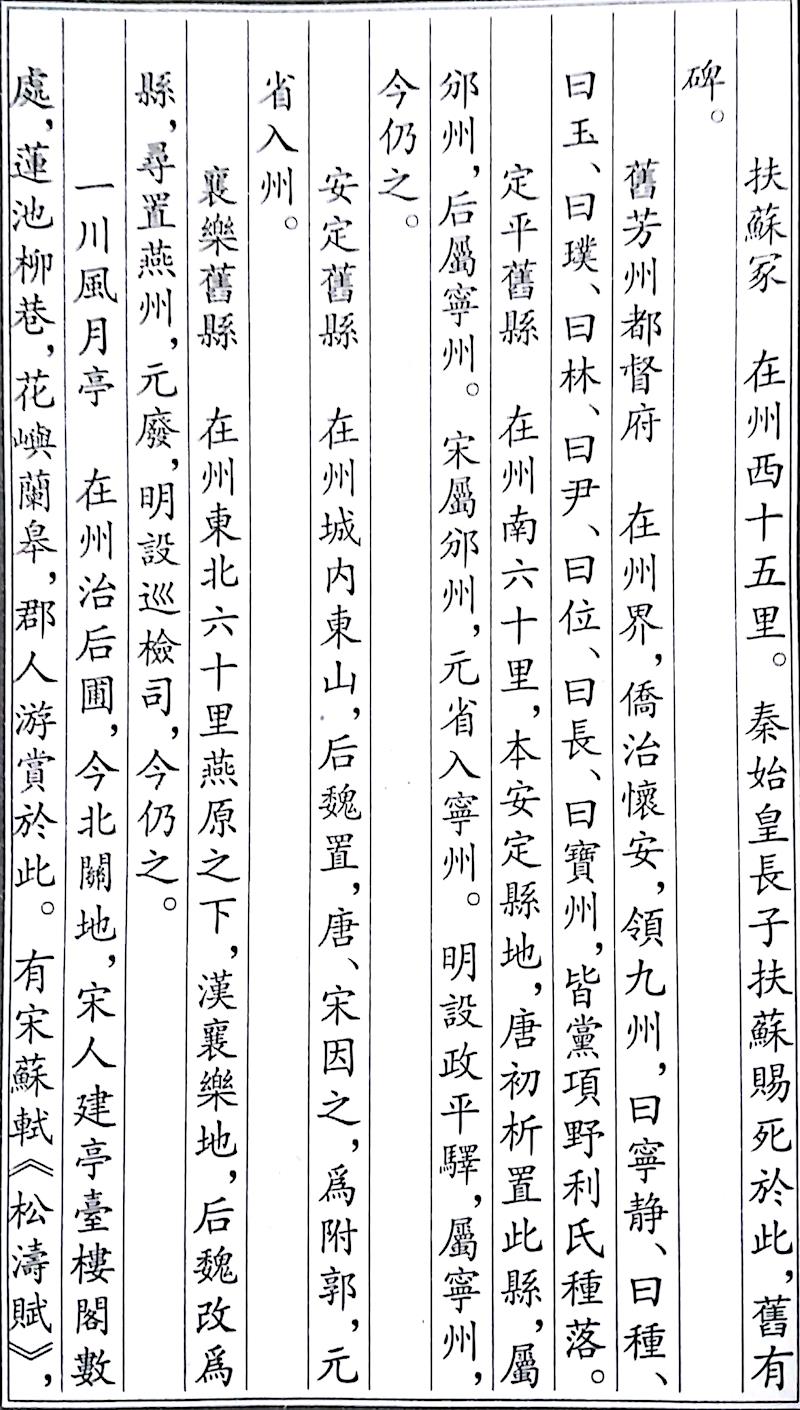 扶蘇冢　在州西十五里。秦始皇長子扶蘇賜死於此，舊有
碑。
舊芳州都督府　在州界，僑治懷安，領九州，曰寧静、曰種、
曰玉、曰璞、曰林、曰尹、曰位、曰長、曰寶州，皆黨項野利氏種落。
定平舊縣　在州南六十里，本安定縣地，唐初析置此縣，屬
邠州，后屬寧州。宋屬邠州，元省入寧州。明設政平驛，屬寧州，
今仍之。
安定舊縣　在州城内東山，后魏置，唐、宋因之，爲附郭，元
省入州。
襄樂舊縣　在州東北六十里燕原之下，漢襄樂地，后魏改爲
縣，尋置燕州，元廢，明設巡檢司，今仍之。
一川風月亭　在州治后圃，今北關地，宋人建亭臺樓閣數
處，蓮池柳巷，花嶼蘭皋，郡人游賞於此。有宋蘇軾《松濤賦》，